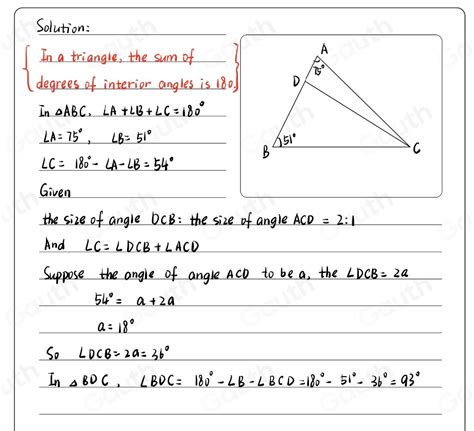 Solution:
In a triangle, the sum of
degrees of interior angles is 180.
In △ABC, ∠A+∠B+∠C=180°
∠A=75°, ∠B=51°
∠C= 180°-∠A-∠B=54°
Given
the size of angle DCB: the size of angle ACD = 2:1
And ∠C=∠DCB+∠ACD
Suppose the angle of angle ACD to be a, the ∠DCB=2a
54°= a+2a
a=18°
So ∠DCB=2a=36°
In △BDC, ∠BDC= 180°-∠B-∠BCD=180°-51°-36°=93°
A
75°
D
B
51°
C
Gauth